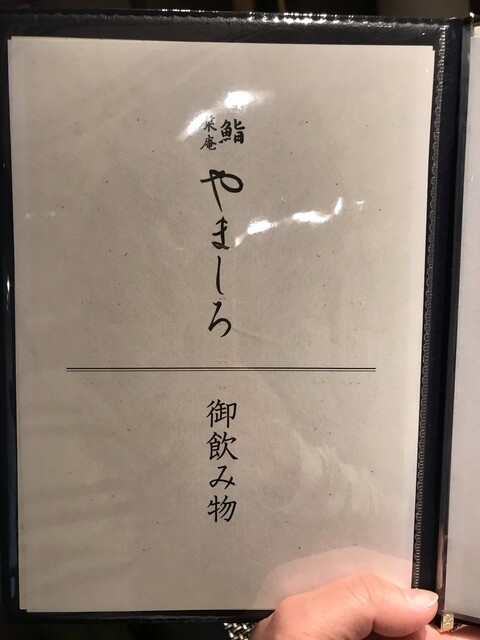 鮨
庵
やましろ
御飲み物